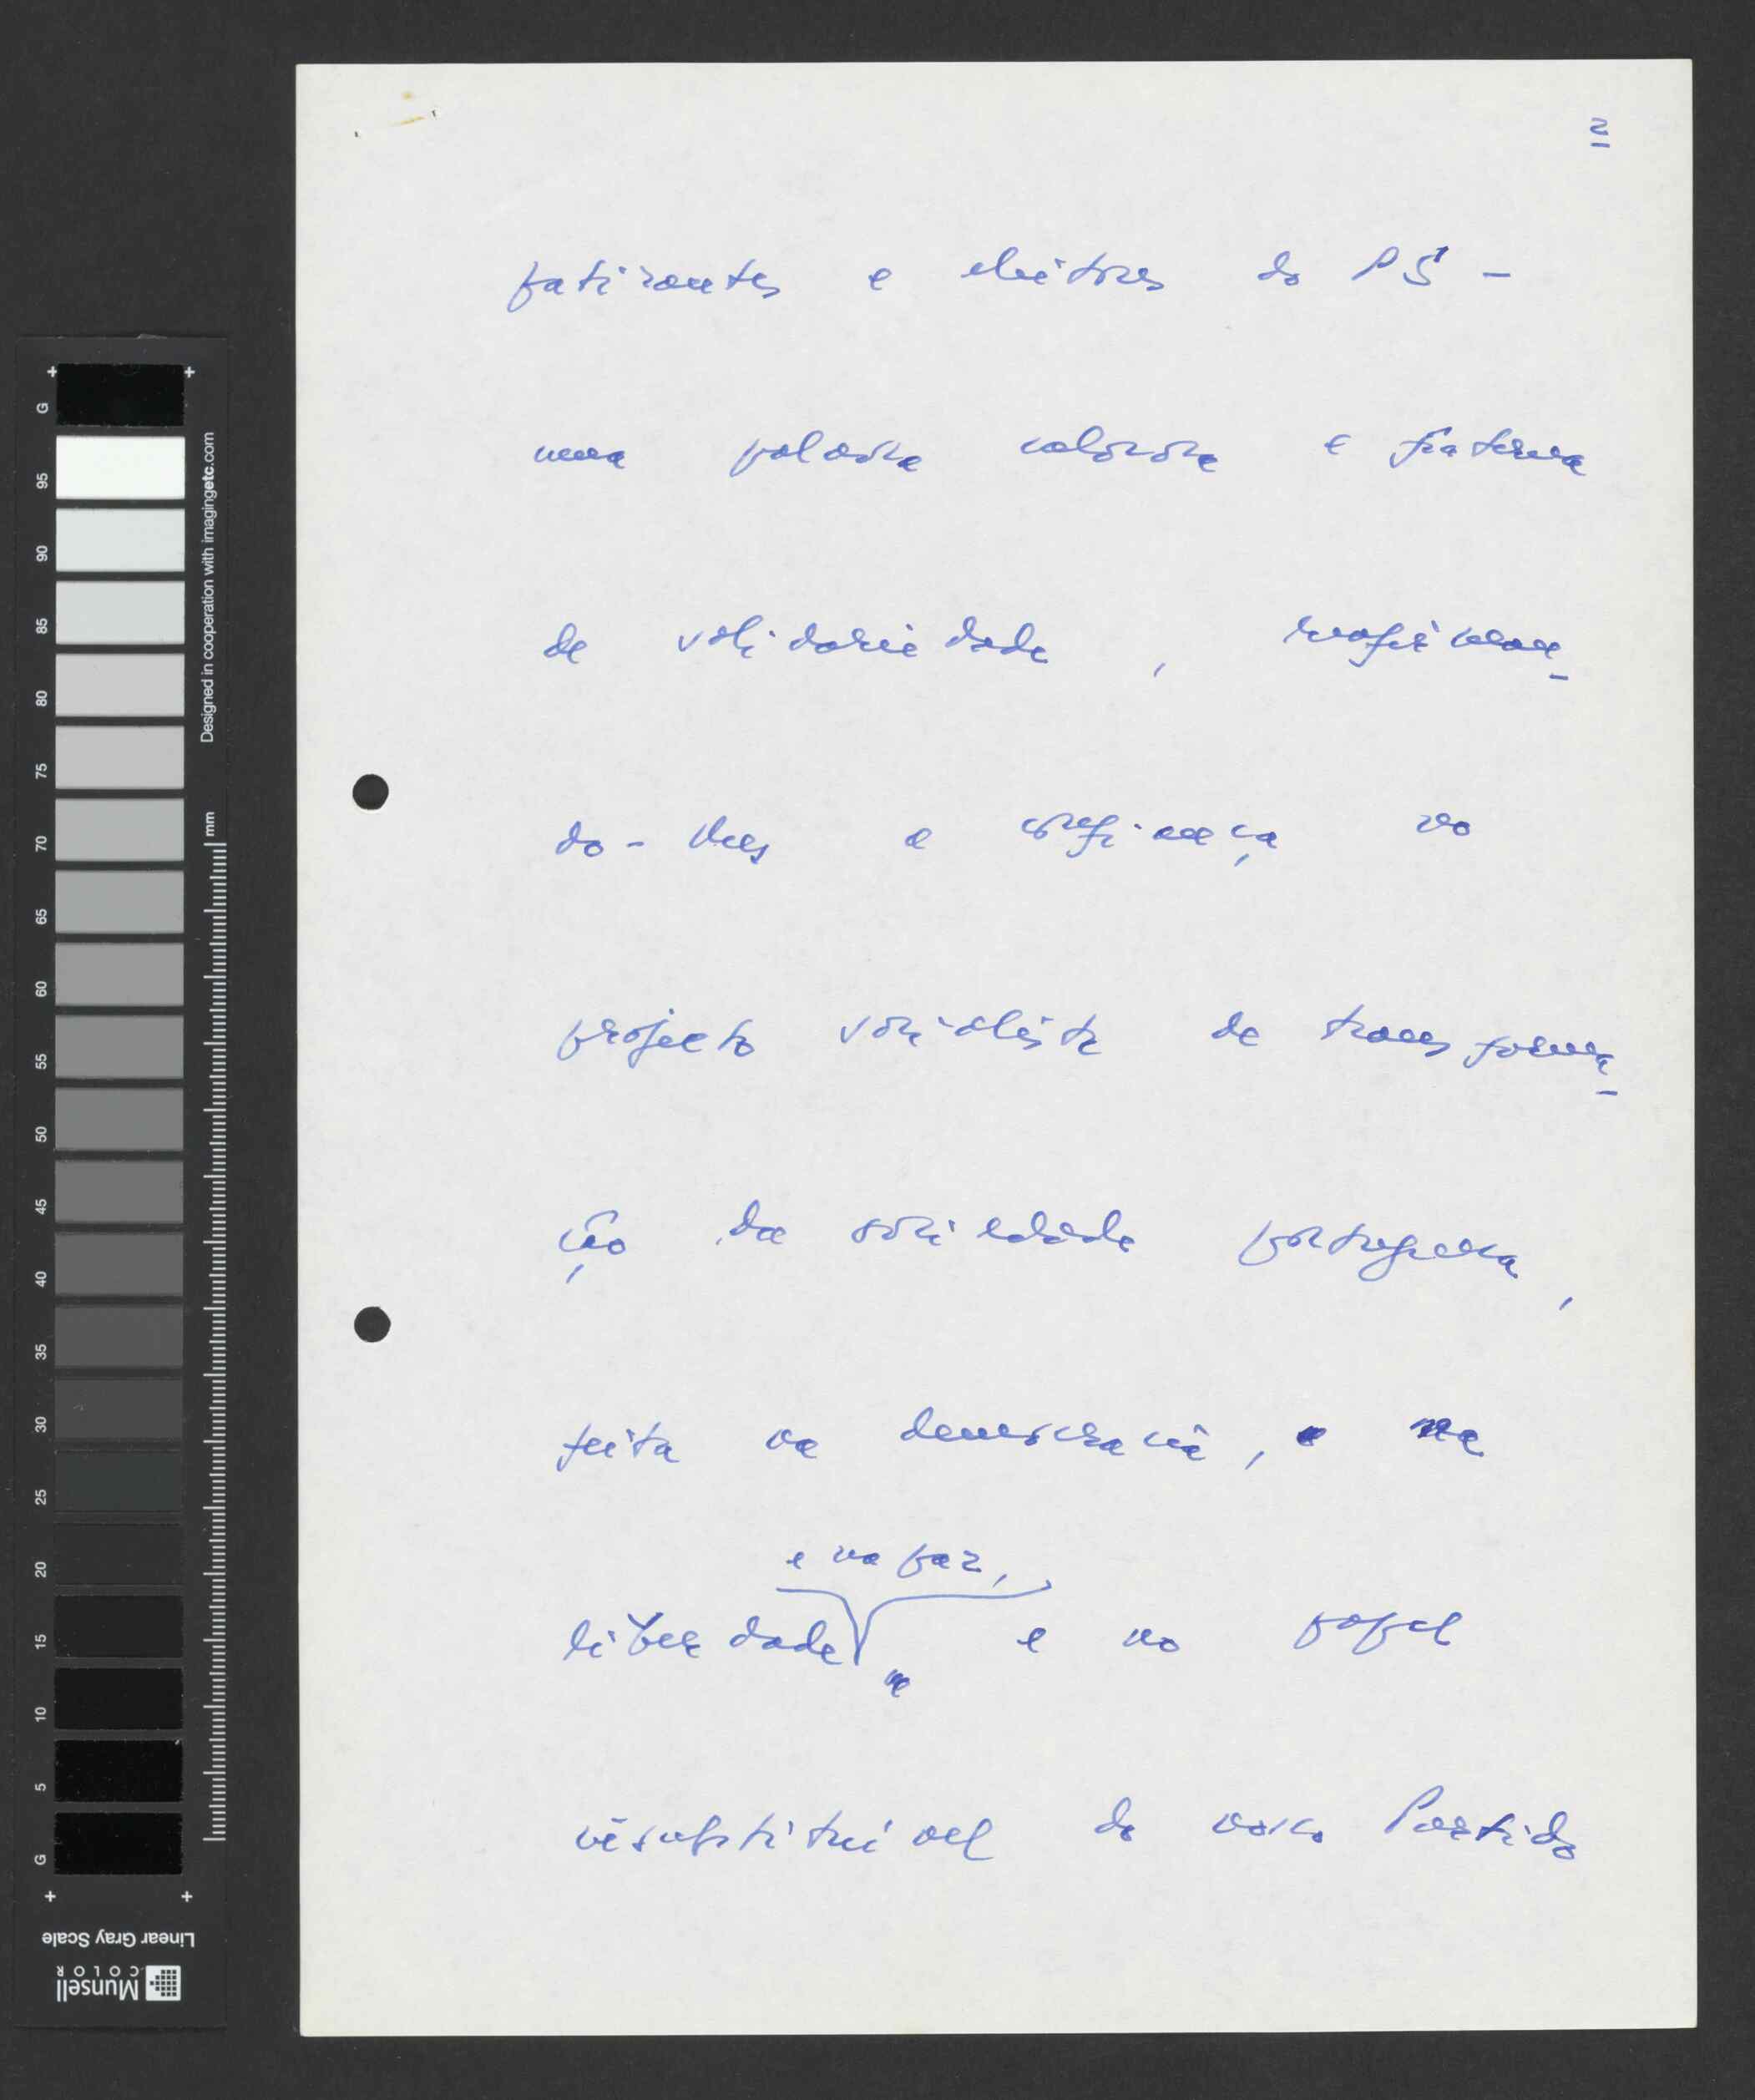 2
patizantes e eleitores do PS -
uma palavra calorosa e fraterna
de solidariedade, reafirman-
do-lhes a confiança no
projecto socialista de transforma-
ção da sociedade portuguesa,
feita na democracia, e na
e na paz,
liberdade e no papel
insubstituível do nosso Partido
G
95
90
85
80
75
70
65
60
55
50
45
40
35
30
25
20
15
10
5
G
Designed in cooperation with imagingetc.com
mm
Linear Gray Scale
Munsell
COLOR